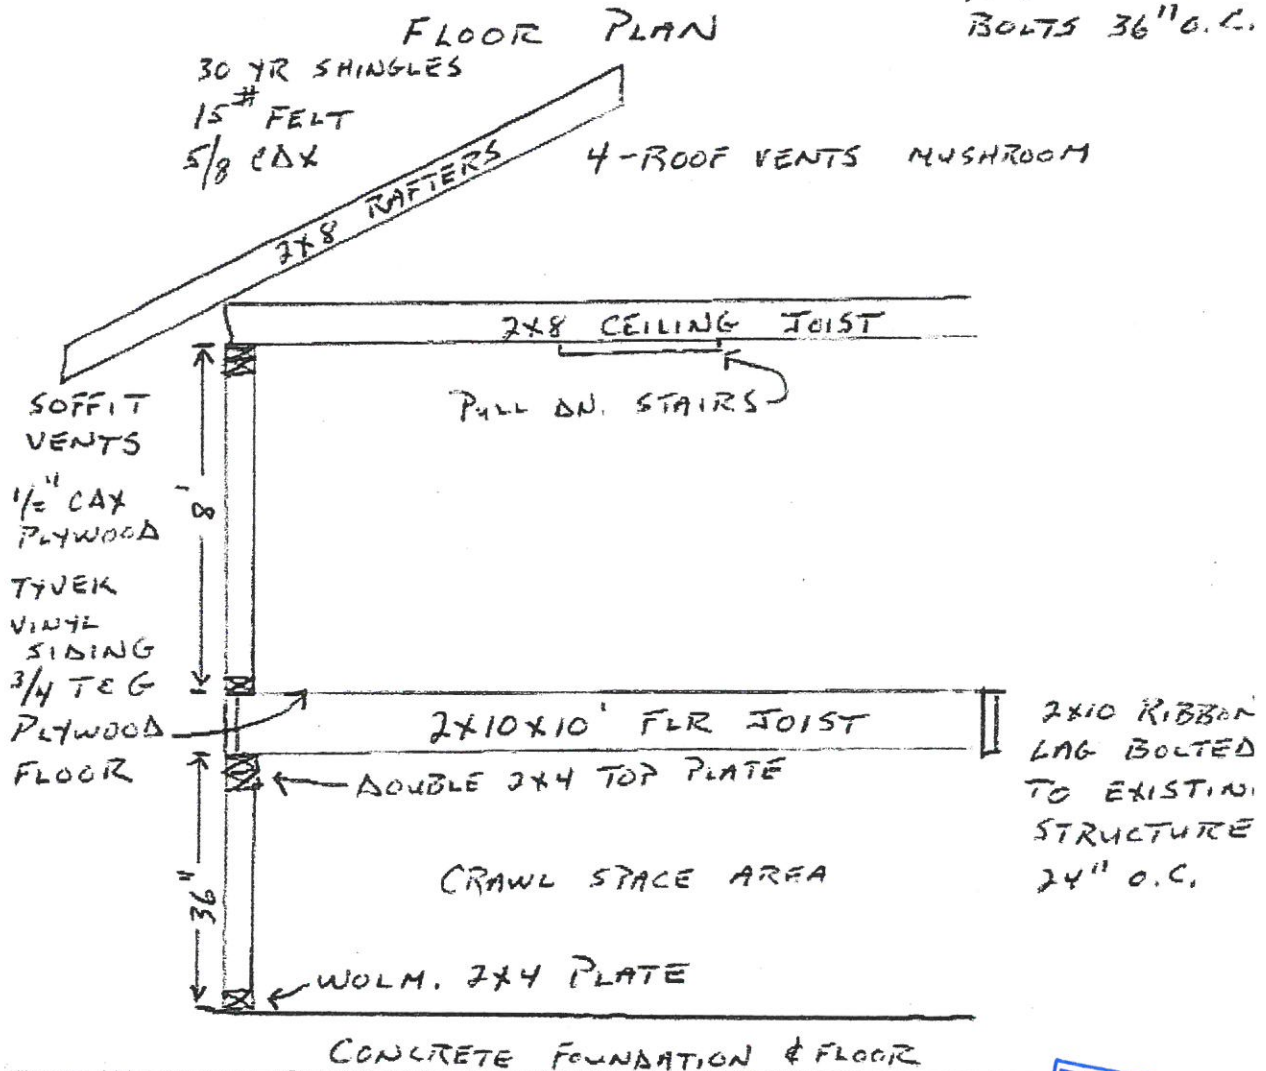 FLOOR PLAN
BOLTS 36" O.C.
30 YR SHINGLES
15# FELT
5/8 CDX
2X8 RAFTERS
4-ROOF VENTS MUSHROOM
2X8 CEILING JOIST
PULL DN. STAIRS
SOFFIT
VENTS
1/2" CDX
PLYWOOD
8'
TYVEK
VINYL
SIDING
3/4 T&G
PLYWOOD
FLOOR
2X10X10' FLR JOIST
2X10 RIBBON
LAG BOLTED
TO EXISTIN
STRUCTURE
24" O.C.
DOUBLE 2X4 TOP PLATE
36"
CRAWL SPACE AREA
WOLM. 2X4 PLATE
CONCRETE FOUNDATION & FLOOR